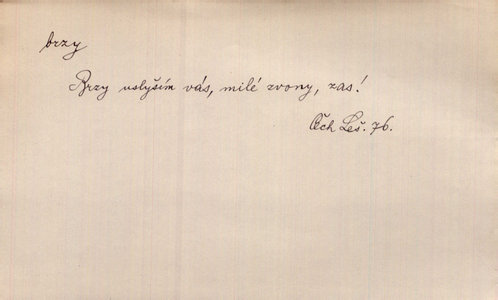 brzy
Brzy uslyším vás, milé zvony, zas!
Čech Leš. 76.